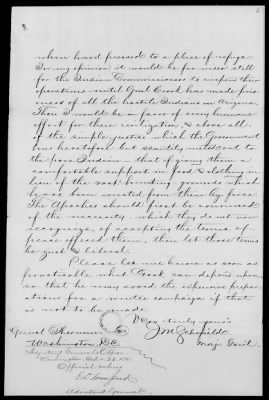 when hard pressed to a place of refuge.
In my opinion it would be far more
for the Indian Commissioners to suspend their
operations until Genl Crook has made pris-
oners of all the hostile Indians in Arizona.
Then I would be in favor of every humane
effort for their civilization, & above all
of the simple justice which the Government
has heretofore but scantily meted out to
the poor Indian — that of giving them a
comfortable support in food & clothing in
lieu of the vast hunting grounds which
have been wrested from them by force.
The Apaches should first be convinced
of the necessity which they do not now
recognize, of accepting the terms of
peace offered them, then let those terms
be just & liberal.
Please let me know as soon as
practicable what Crook can depend upon
so that he may avoid the expensive prepara-
tions for a winter campaign if that
is not to be made.
Very truly yours
General Sherman J M Schofield
Washington D.C. Maj. Genl.
Adjutant General's Office
Washington
Official copy
Adjutant General